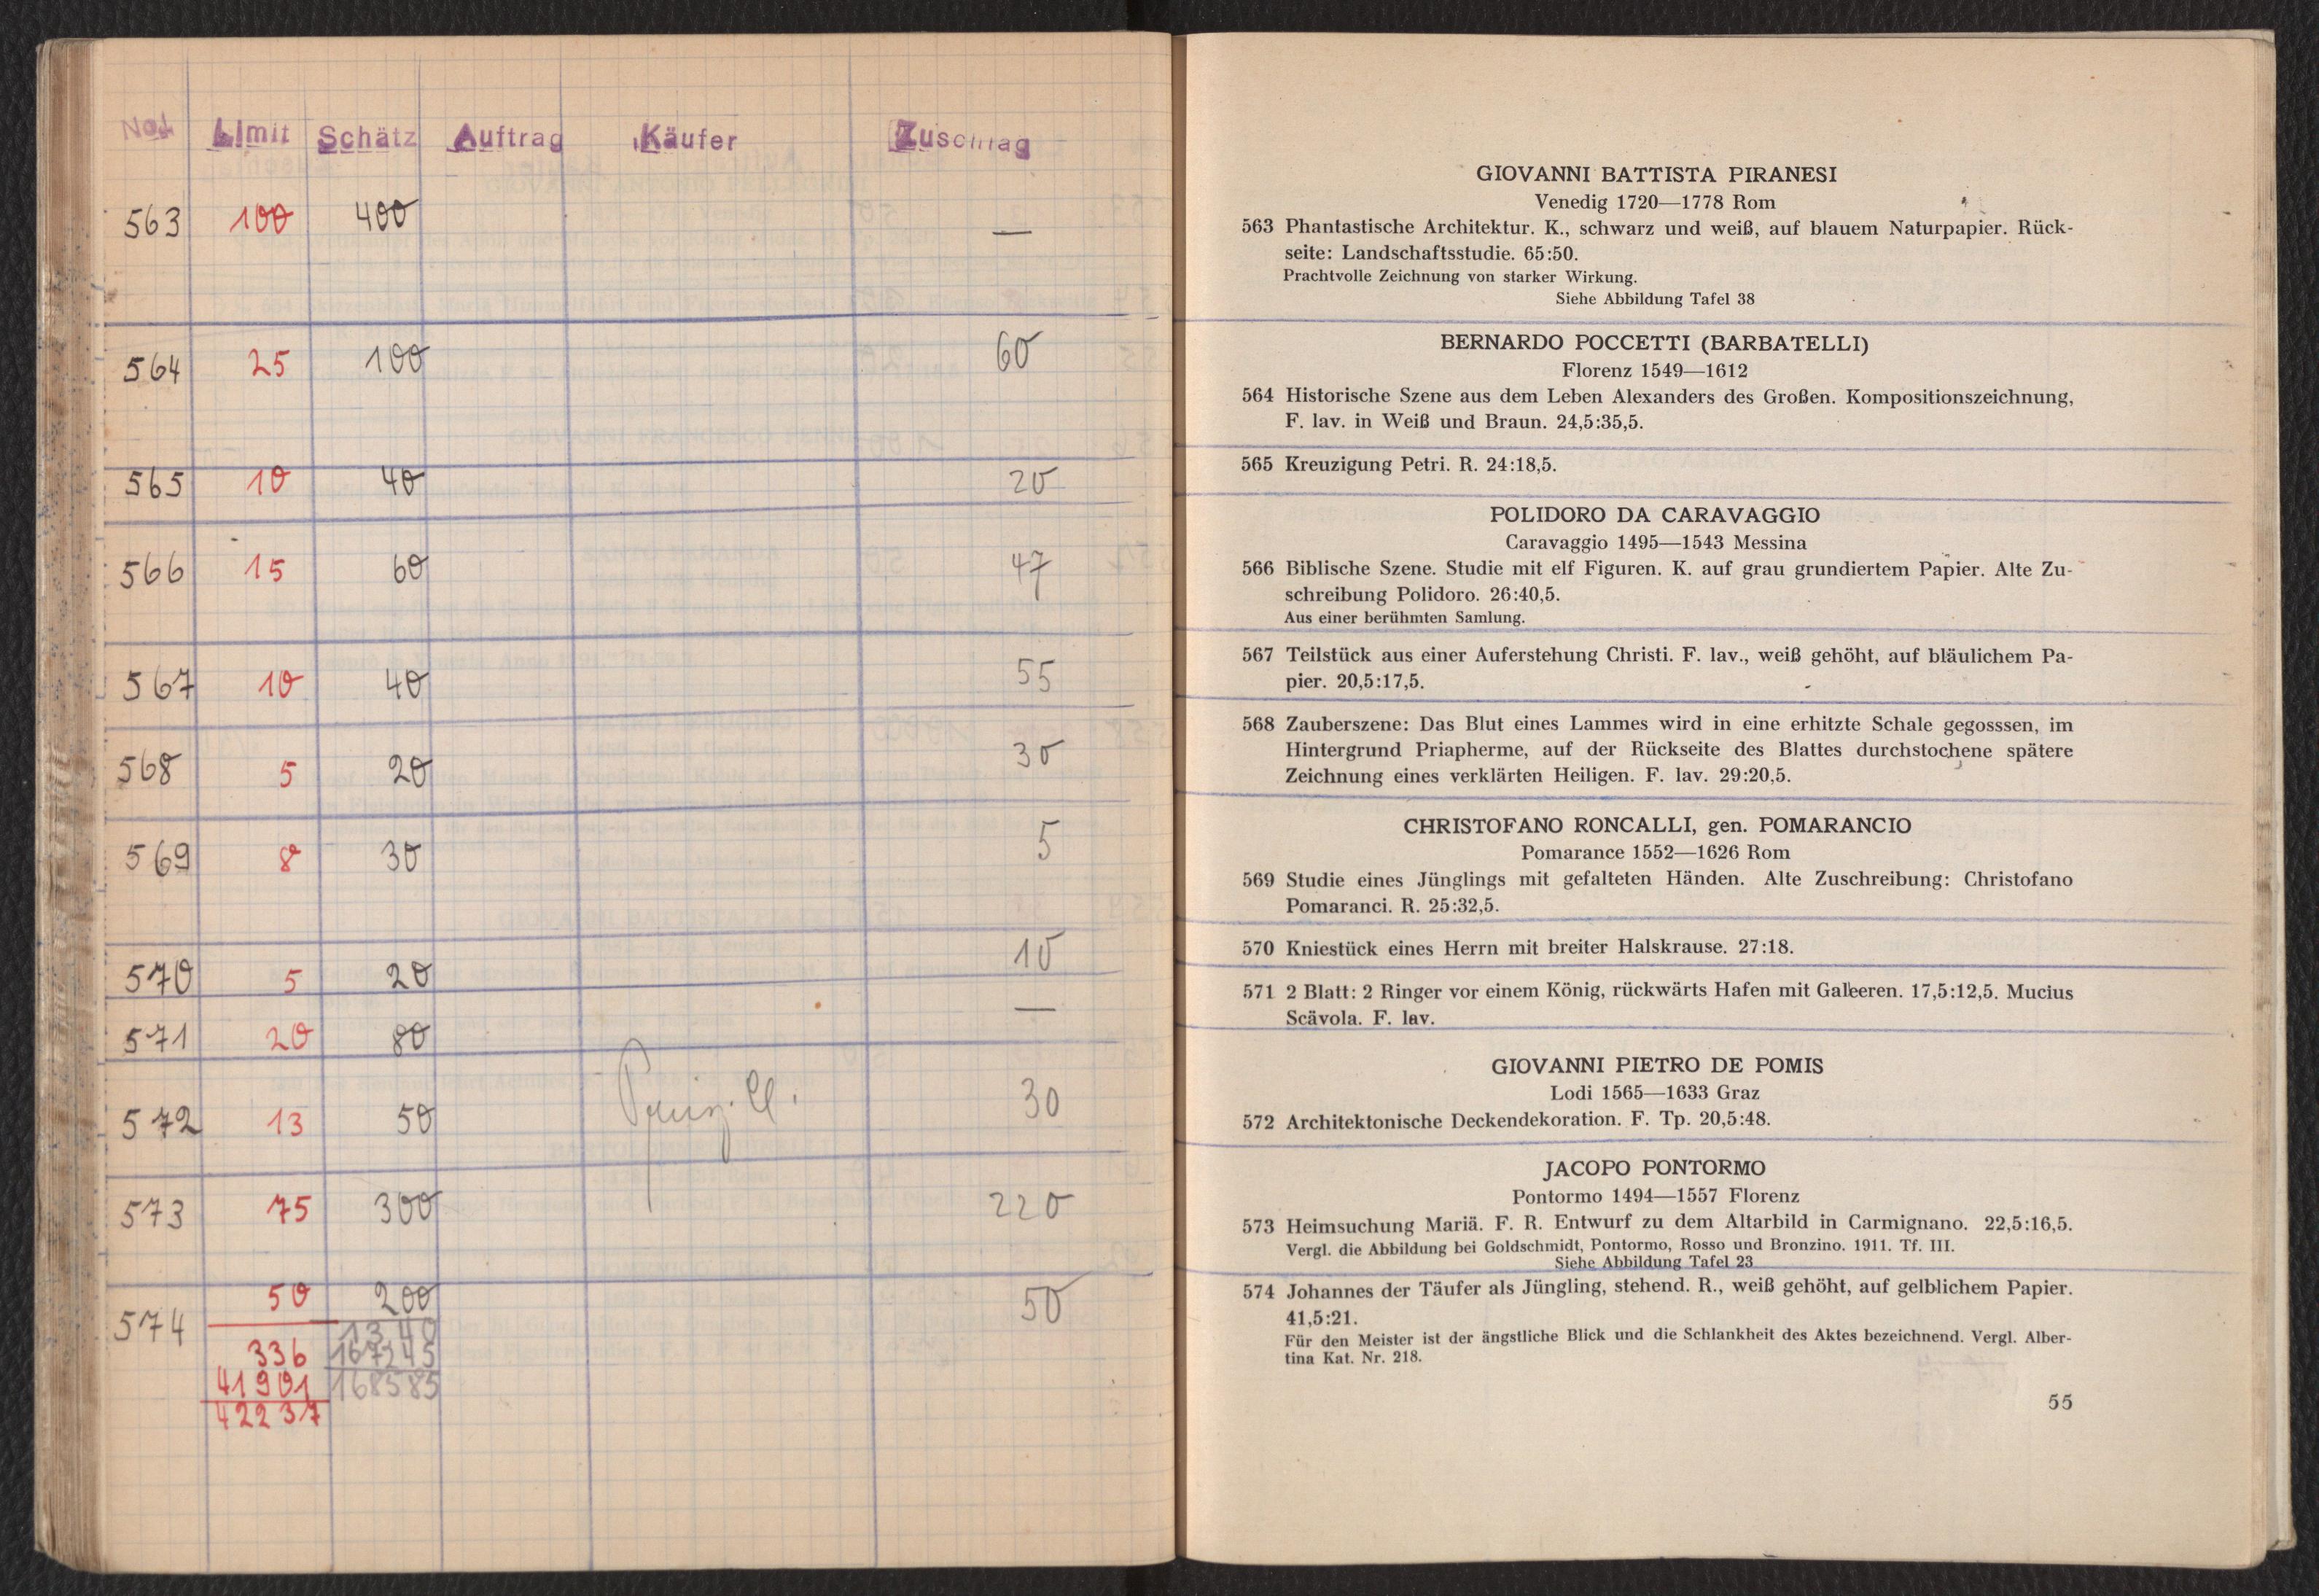 No. Limit Schätz Auftrag Käufer Zuschlag
563 100 400 —
564 25 100 60
565 10 40 20
566 15 60 47
567 10 40 55
568 5 20 30
569 8 30 5
570 5 20 10
571 20 80 —
572 13 50 30
573 75 300 220
574 50 200 50
1340
336 167245
41901 168585
42237
GIOVANNI BATTISTA PIRANESI
Venedig 1720—1778 Rom
563 Phantastische Architektur. K., schwarz und weiß, auf blauem Naturpapier. Rück-
seite: Landschaftsstudie. 65:50.
Prachtvolle Zeichnung von starker Wirkung.
Siehe Abbildung Tafel 38
BERNARDO POCCETTI (BARBATELLI)
Florenz 1549—1612
564 Historische Szene aus dem Leben Alexanders des Großen. Kompositionszeichnung,
F. lav. in Weiß und Braun. 24,5:35,5.
565 Kreuzigung Petri. R. 24:18,5.
POLIDORO DA CARAVAGGIO
Caravaggio 1495—1543 Messina
566 Biblische Szene. Studie mit elf Figuren. K. auf grau grundiertem Papier. Alte Zu-
schreibung Polidoro. 26:40,5.
Aus einer berühmten Samlung.
567 Teilstück aus einer Auferstehung Christi. F. lav., weiß gehöht, auf bläulichem Pa-
pier. 20,5:17,5.
568 Zauberszene: Das Blut eines Lammes wird in eine erhitzte Schale gegosssen, im
Hintergrund Priapherme, auf der Rückseite des Blattes durchstochene spätere
Zeichnung eines verklärten Heiligen. F. lav. 29:20,5.
CHRISTOFANO RONCALLI, gen. POMARANCIO
Pomarance 1552—1626 Rom
569 Studie eines Jünglings mit gefalteten Händen. Alte Zuschreibung: Christofano
Pomaranci. R. 25:32,5.
570 Kniestück eines Herrn mit breiter Halskrause. 27:18.
571 2 Blatt: 2 Ringer vor einem König, rückwärts Hafen mit Galeeren. 17,5:12,5. Mucius
Scävola. F. lav.
GIOVANNI PIETRO DE POMIS
Lodi 1565—1633 Graz
572 Architektonische Deckendekoration. F. Tp. 20,5:48.
JACOPO PONTORMO
Pontormo 1494—1557 Florenz
573 Heimsuchung Mariä. F. R. Entwurf zu dem Altarbild in Carmignano. 22,5:16,5.
Vergl. die Abbildung bei Goldschmidt, Pontormo, Rosso und Bronzino. 1911. Tf. III.
Siehe Abbildung Tafel 23
574 Johannes der Täufer als Jüngling, stehend. R., weiß gehöht, auf gelblichem Papier.
41,5:21.
Für den Meister ist der ängstliche Blick und die Schlankheit des Aktes bezeichnend. Vergl. Alber-
tina Kat. Nr. 218.
55